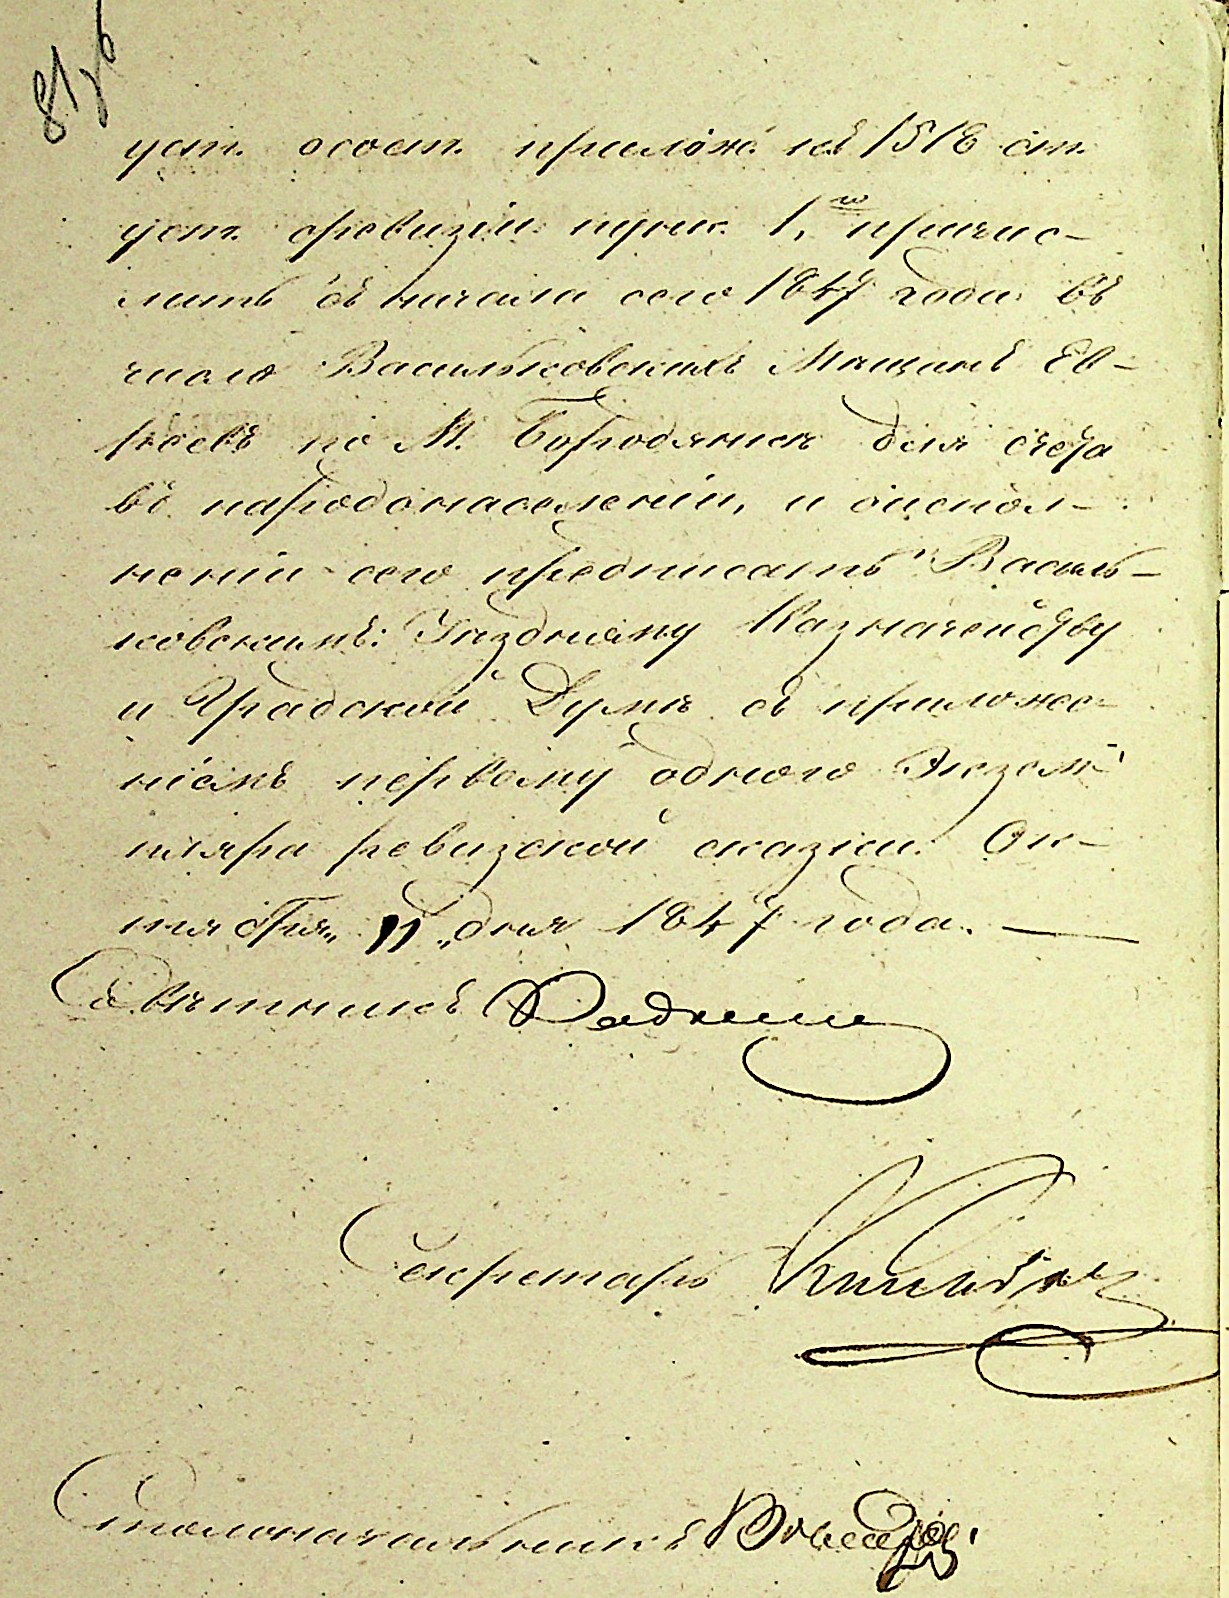 уст. о сост. прилож. къ 1518 ст.
уст. о ревизіи пунк. 1, причис-
лить съ начала сего 1847 года въ
число Васильковскихъ Мѣщанъ Ев-
реевъ по М. Бородянкѣ для счета
въ народонаселеніи, и о испол-
неніи сего предписать Василь-
ковскимъ: Уѣздному Казначейству
и Градской Думѣ съ приложе-
ніемъ первому одного Экзем-
пляра ревизской сказки. Ок-
тября „11„ дня 1847 года. —
Совѣтникъ
Секретарь
Столоначальникъ